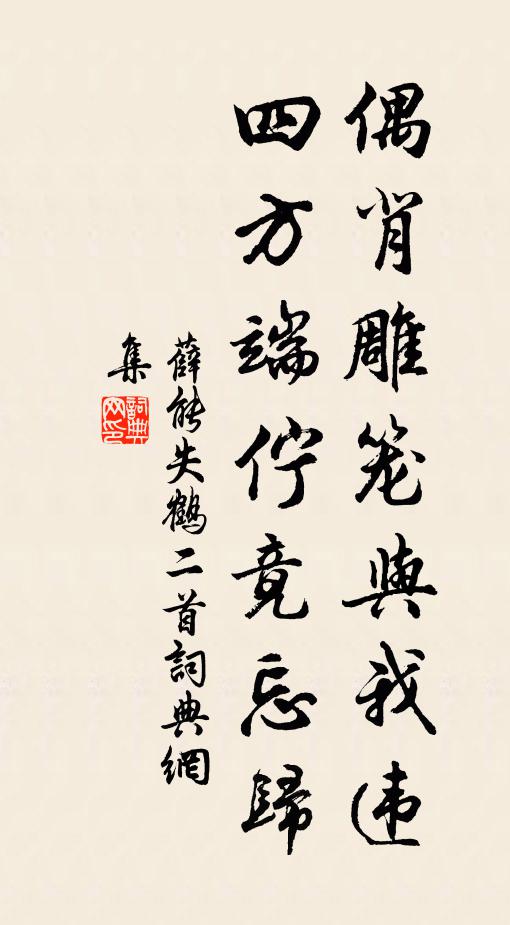 偶背雕笼與我违
四方端佇竟忘歸
薛能失鶴二首詞典網
集
詞典
网印